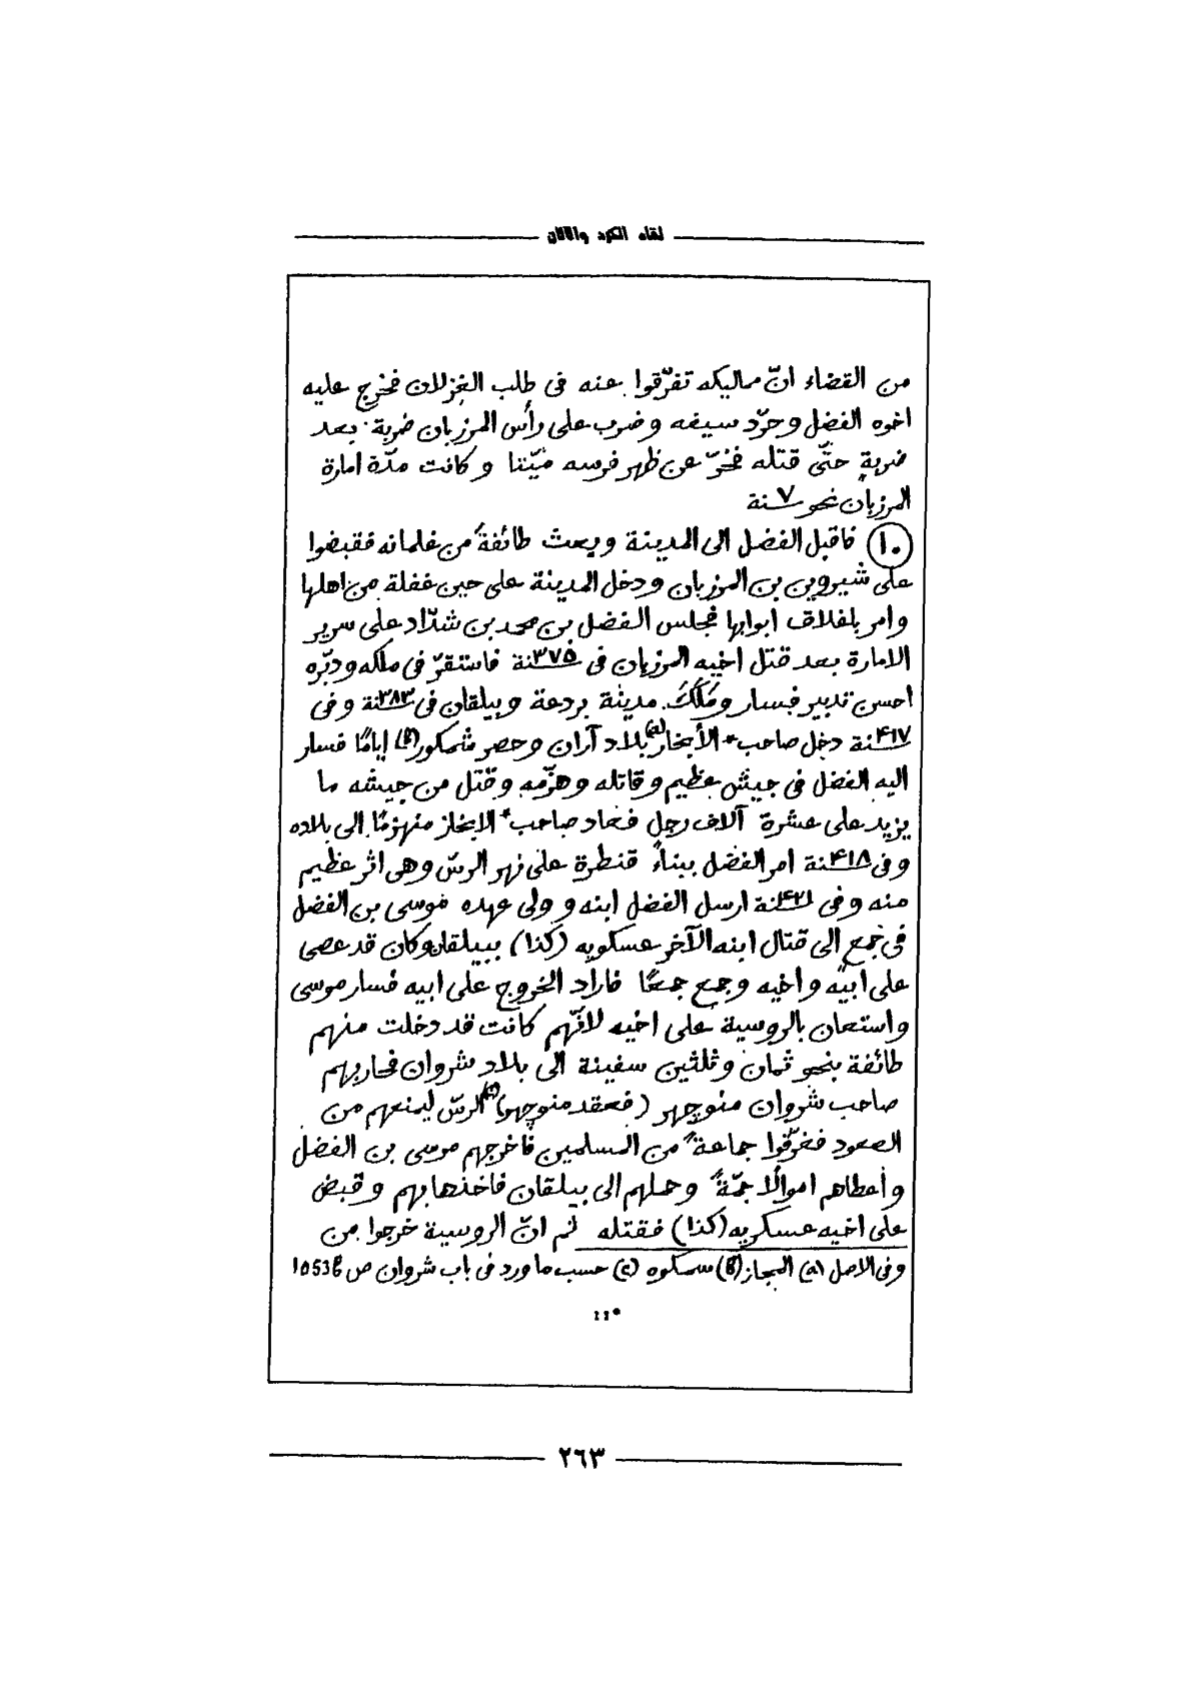 لقاء الكرد واللان
من القضاء انّ مماليكه تفرّقوا عنه فى طلب الغزلان فخرج عليه
اخوه الفضل وجرّد سيفه وضرب على رأس المرزبان ضربة بعد
ضربةٍ حتّى قتله فخرّ عن ظهر فرسه ميّتا وكانت مدّة امارة
المرزبان نحو ٧ سنة
(١٠) فاقبل الفضل الى المدينة وبعث طائفةً من غلمانه فقبضوا
على شيروين بن المرزبان ودخل المدينة على حين غفلة من اهلها
وامر باغلاق ابوابها فجلس الفضل بن محمد بن شدّاد على سرير
الامارة بعد قتل اخيه المرزبان فى سنة ٣٧٥ فاستقرّ فى ملكه ودبّره
احسن تدبير فسار وَمَلَكَ مدينة بردعة وبيلقان فى سنة ٣٨٣ وفى
سنة ۴١٧ دخل صاحب * الأبخاز(a) بلاد آران وحصر شمكور(b) ايامًا فسار
اليه الفضل فى جيش عظيم وقاتله وهزّمه وقتل من جيشه ما
يزيد على عشرة آلاف رجل فعاد صاحب * الابخاز منهزمًا الى بلاده
وفى سنة ۴١٨ امر الفضل ببناء قنطرة على نهر الرسّ وهى اثر عظيم
منه وفى سنة ۴٢١ ارسل الفضل ابنه و ولى عهده موسى بن الفضل
فى جمع الى قتال ابنه الآخر عسكويه (كذا) ببيلقان وكان قد عصى
على ابيه واخيه وجمع جمعًا فاراد الخروج على ابيه فسار موسى
واستعان بالروسية على اخيه لأنّهم كانت قد دخلت منهم
طائفة بنحو ثمان وثلثين سفينة الى بلاد شروان فحاربهم
صاحب شروان منوچهر (فعقد منوچهر)(c) الرسّ ليمنعهم من
الصعود فغرّقوا جماعةً من المسلمين فاخرجهم موسى بن الفضل
واعطاهم اموالًا جمّةً وحملهم الى بيلقان فاخذها بهم وقبض
على اخيه عسكريه (كذا) فقتله ثم انّ الروسية خرجوا من
وفى الاصل (a) البجاز (b) سمكوه (c) حسب ما ورد فى باب شروان ص 1053b
٢٦٣